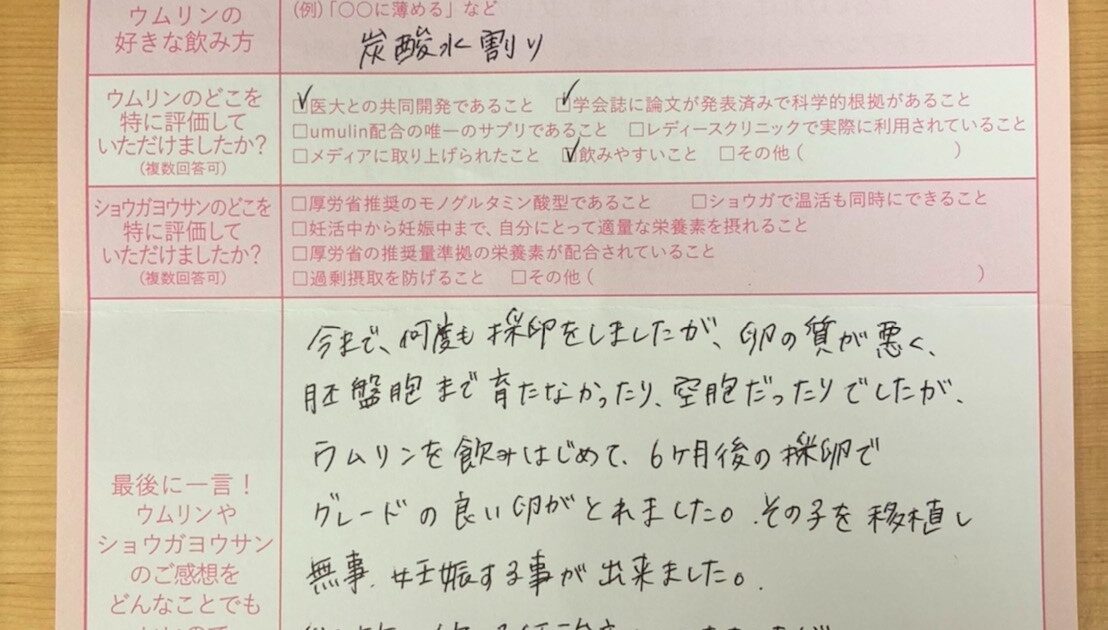 ウムリンの
好きな飲み方
(例)「〇〇に薄める」など
炭酸水割り
ウムリンのどこを
特に評価して
いただけましたか?
(複数回答可)
☑医大との共同開発であること ☑学会誌に論文が発表済みで科学的根拠があること
□umulin配合の唯一のサプリであること □レディースクリニックで実際に利用されていること
□メディアに取り上げられたこと ☑飲みやすいこと □その他( )
ショウガヨウサンのどこを
特に評価して
いただけましたか?
(複数回答可)
□厚労省推奨のモノグルタミン酸型であること □ショウガで温活も同時にできること
□妊活中から妊娠中まで、自分にとって適量な栄養素を摂れること
□厚労省の推奨量準拠の栄養素が配合されていること
□過剰摂取を防げること □その他( )
最後に一言!
ウムリンや
ショウガヨウサン
のご感想を
どんなことでも
今まで、何度も採卵をしましたが、卵の質が悪く、
胚盤胞まで育たなかったり、空胞だったりでしたが、
ウムリンを飲みはじめて、6ヶ月後の採卵で
グレードの良い卵がとれました。その子を移植し
無事、妊娠する事が出来ました。